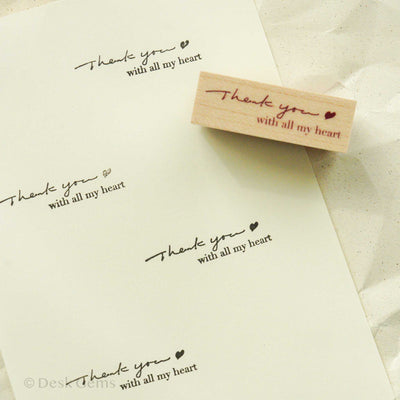 Thank you
with all my heart
Thank you
with all my heart
Thank you
with all my heart
Thank you
with all my heart
Thank you
with all my heart
© Desk Gems